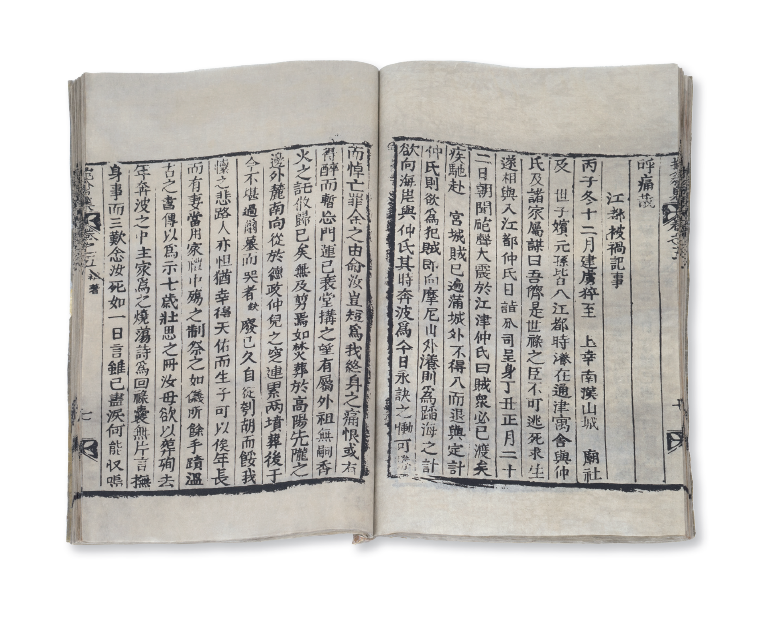 呼痛哉
江都被禍記事
丙子冬十二月建虜猝至 上幸南漢山城 廟社
及 世子嬪元孫皆入江都時濬在通津寓舍與仲
氏及諸家屬謀曰吾儕是世祿之臣不可逃死求生
遂相與入江都仲氏日詣分司呈身丁丑正月二十
二日朝聞砲聲大震於江津仲氏曰賊衆必已渡矣
疾馳赴 宮城賊已遍滿城外不得入而退與定計
仲氏則欲爲犯賊即向摩尼山外濬則爲蹈海之計
欲向海岸與仲氏其時奔波爲今日永訣之慟可
而悼亡罪余之由命汝豈短爲我終身之痛恨或有
得醉而暫忘門蓮已衰堂搆之望有屬外祖無嗣香
火之託攸歸已矣無及剪焉如焚葬於高陽先隴之
邊外麓南向從於德政仲兒之窆連累兩墳葬後于
今不堪過爾墓而哭者 廢已久自從朝胡而餒我
懷之悲路人亦怛猶幸得天佑而生子可以俟年長
而有妻當用家禮中殤之制祭之如儀所餘手蹟溫
古之書傳以爲示七歲壯思之冊汝毋欲以葬殉去
年奔波之中主家爲之燒蕩詩爲回祿囊無片言撫
身事而三歎念汝死如一日言雖已盡淚何能收嗚